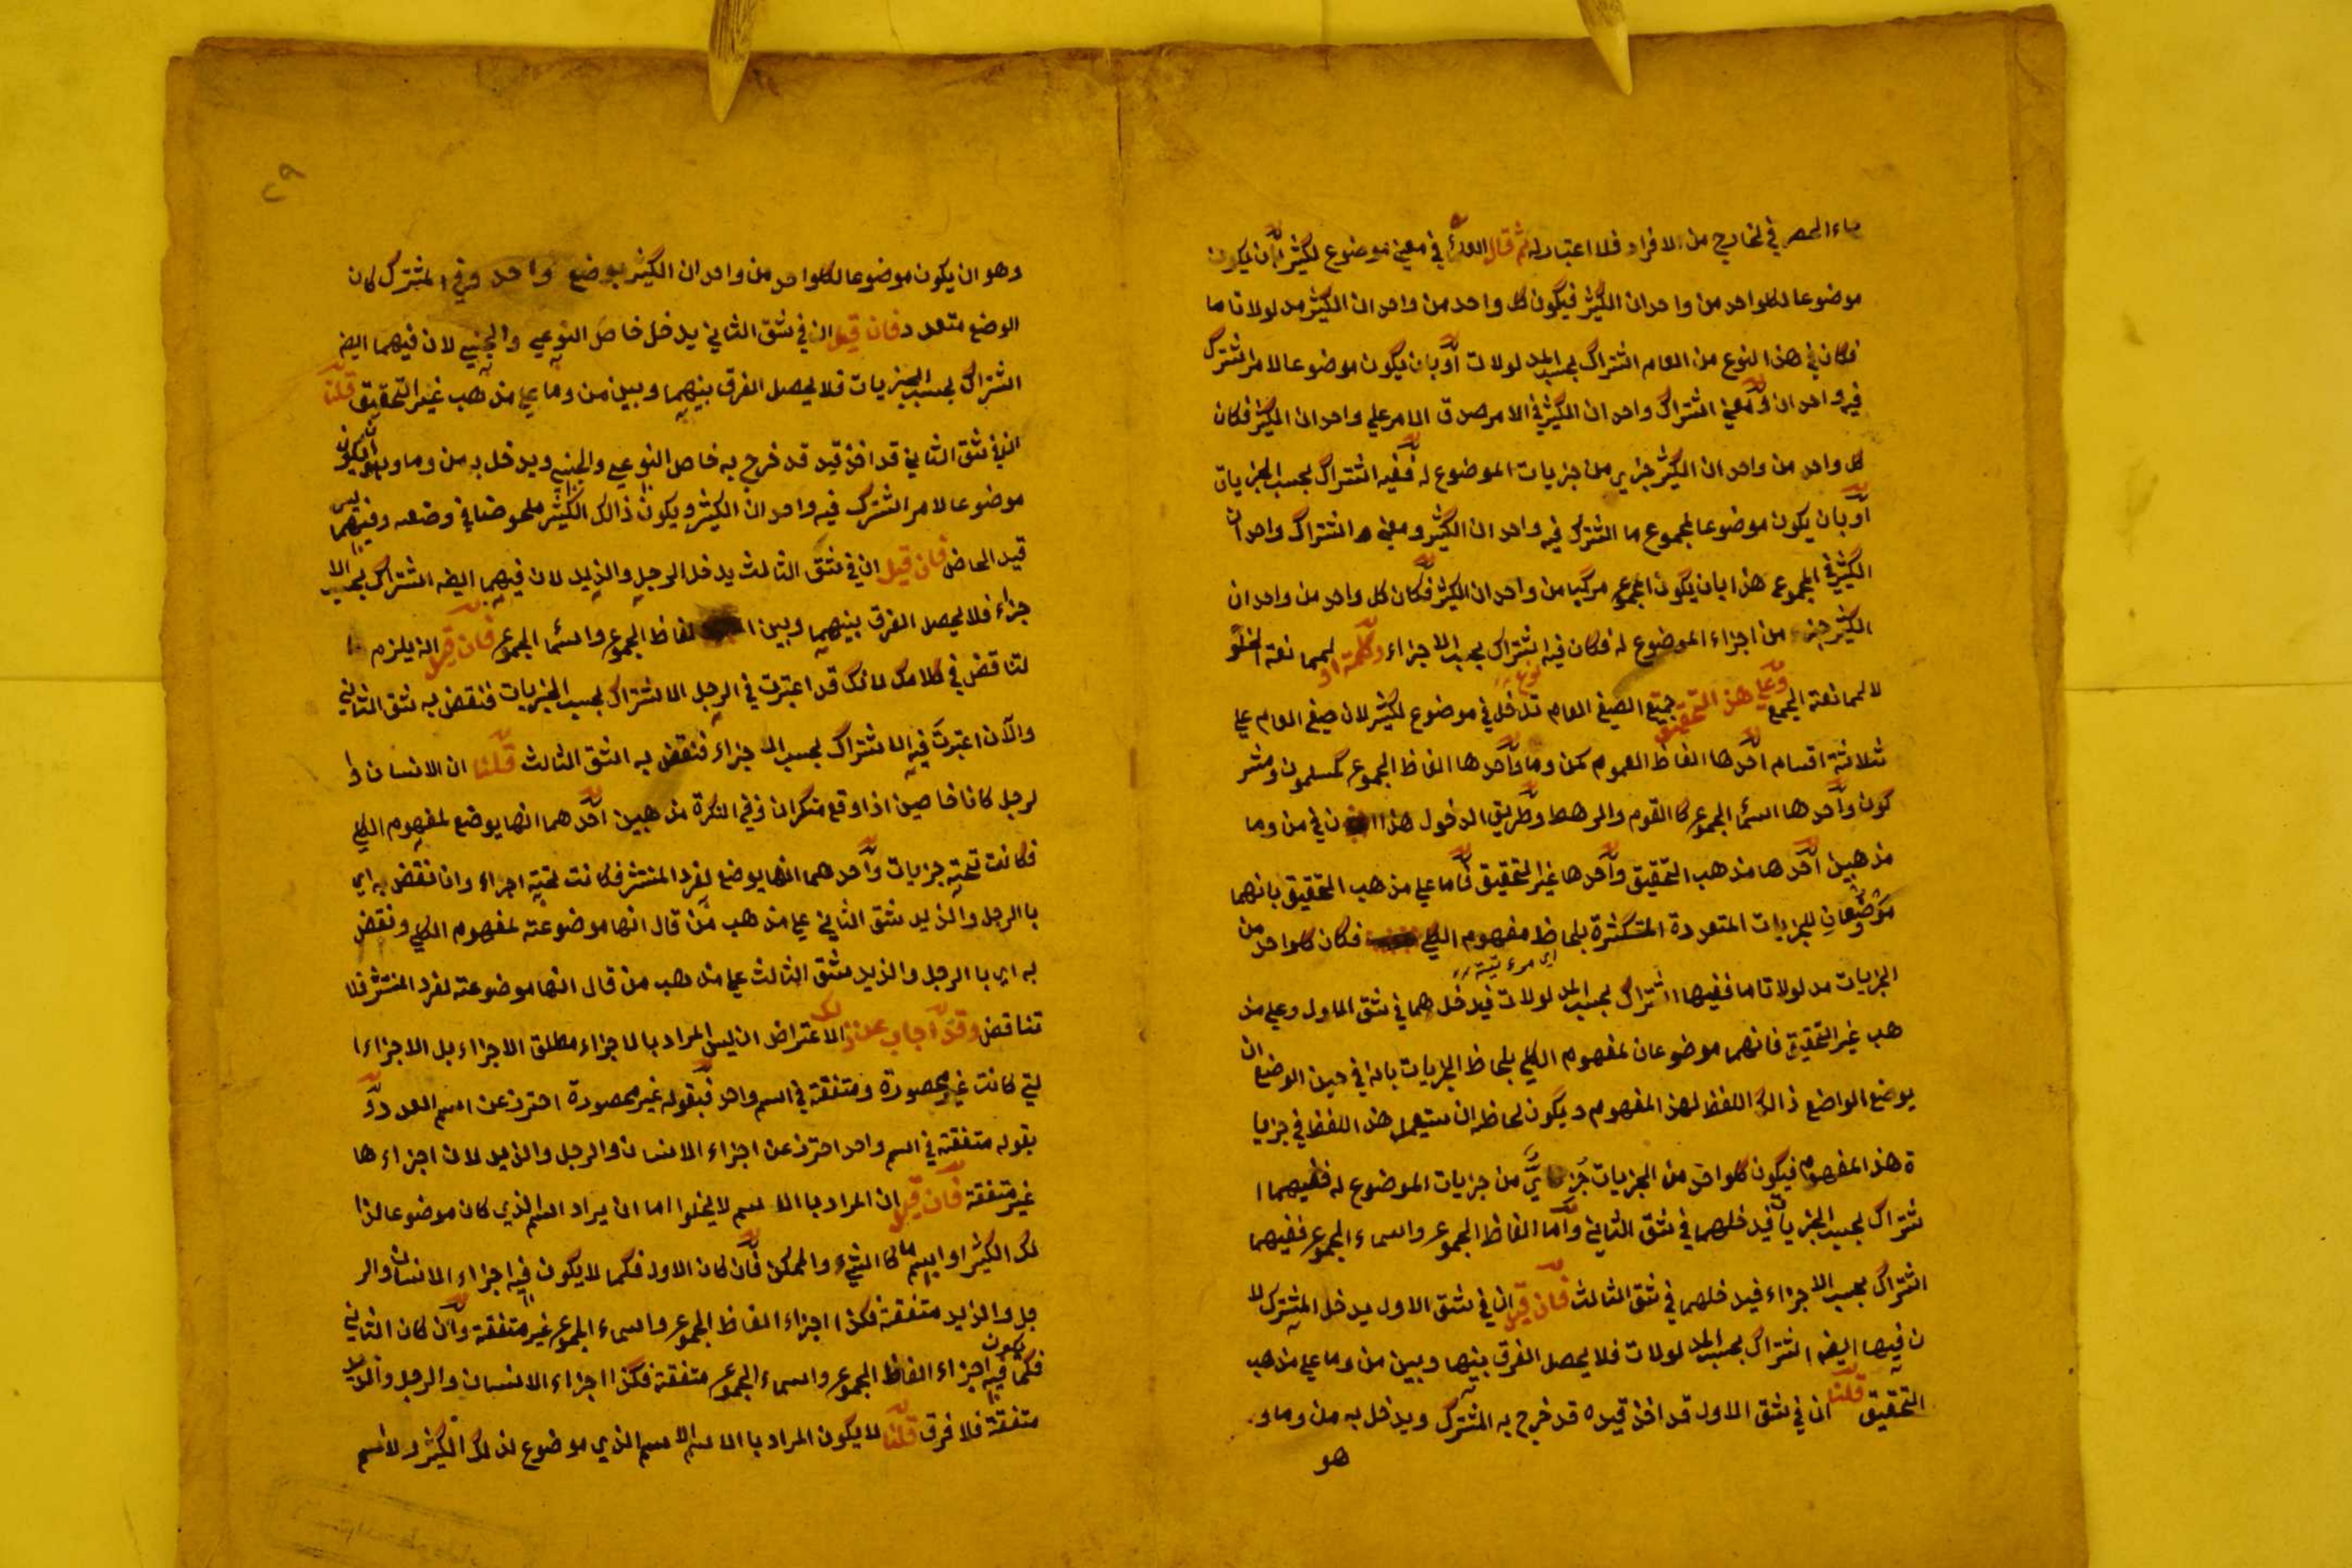 ماء الحصر في لخارج من الافراد فلا اعتبار له ثم قال العد في معنى موضوع لكثير أن يكون
موضوعا لكلواحد من واحدان الكثير فيكون كل واحد من واحدان الكثير مدلولا تاما
فكان في هذا النوع من العام اشتراك بحسب المدلولات أو بان يكون موضوعا لامر اشترك
فيه واحدان ومعنى اشتراك واحدان الكثير في الامر صدق الامر علي واحدان الكثير فكان
كل واحد من واحدان الكثير جزي من جزيات الموضوع له ففيه اشتراك بحسب الجزيات
أو بان يكون موضوعا لمجموع ما اشترك فيه واحدان الكثير ومعنى اشتراك واحدان
الكثير في المجموع هذا بان يكون المجموع مركبا من واحدان الكثير فكان كل واحد من واحدان
الكثير جزء من اجزاء الموضوع له فكان فيه اشتراك بحسب الاجزاء وكلمة او لمما نعة الخلو
لا لمما نعة الجمع وعلي هذا التحقيق جميع الصيغ العام تدخل في موضوع لكثير لان صيغ العام علي
ثلاثة اقسام احدها الفاظ العموم كمن وما واحدها الفاظ الجموع كمسلمون ومشر
كون واحدها اسما الجموع كا القوم والرهط وطريق الدخول هذا ان في من وما
مذهبين احدها مذهب التحقيق واحدها غير التحقيق فاما علي مذهب التحقيق بانهما
موضوعان للجزيات المتعددة المتكثرة بلحاظ مفهوم الكلي فكان كلواحد من
الجزيات مدلولا تاما ففيهما اشتراك بحسب المدلولات فيدخل هما في شق الاول وعلي مذ
هب غير التحقيق فانهما موضوعان لمفهوم الكلي بلحاظ الجزيات بانه في حين الوضع ان
يوضع الواضع ذالك اللفظ لهذا المفهوم ويكون لحاظه ان يستعمل هذا اللفظ في جزيا
ة هذا المفهوم فيكون كلواحد من الجزيات جزي من جزيات الموضوع له ففيهما ا
شتراك بحسب الجزيات فيدخلهما في شق الثاني واما الفاظ الجموع واسماء الجموع ففيهما
اشتراك بحسب الاجزاء فيدخلهما في شق الثالث فان قيل ان في شق الاول يدخل المشترك لا
ن فيها ايضه اشتراك بحسب المدلولات فلا يحصل الفرق بينها وبين من وما علي مذهب
التحقيق قلنا ان في شق الاول قد اخذ قيده قد خرج به المشترك ويدخل به من وما و
هو
٢٩
وهو ان يكون موضوعا لكلواحد من واحدان الكثير بوضع واحد وفي المشترك كان
الوضع متعدد فان قيل ان في شق الثاني يدخل خاص النوعي والجنسي لان فيهما ايضه
اشتراك بحسب الجزيات فلا يحصل الفرق بينهما وبين من وما علي مذهب غير التحقيق قلنا
ان في شق الثاني قد اخذ قيد قد خرج به خاص النوعي والجنسي ويدخل به من وما وهو ان يكون
موضوعا لامر اشترك فيه واحدان الكثير ويكون ذالك الكثير ملحوضا في وضعه وفيهما ليس
قيد الحاض فان قيل ان في شق الثالث يدخل الرجل والذيد لان فيهما ايضه اشتراك بحسب الا
جزاء فلا يحصل الفرق بينهما وبين الفاظ الجموع واسما الجموع فان قيل انه يلزم ا
لتناقض في كلامك لانك قد اعتبرت في الرجل الاشتراك بحسب الجزيات فنقض به شق الثاني
والآن اعتبرت فيه الاشتراك بحسب الا جزاء فنقض به الشق الثالث قلنا ان الانسان وا
لرجل كانا خاصين اذا وقع منكران وفي النكرة مذهبين احدهما انها يوضع لمفهوم الكلي
فكانت تحته جزيات واحدهما انها يوضع لفرد المنتشر فكانت تحته اجزاء وانا نقض به اي
با الرجل والذيد شق الثاني علي مذهب من قال انها موضوعته لمفهوم الكلي ونقض
به اي با الرجل والذيد شق الثالث علي مذهب من قال انها موضوعته لفرد المنتشر فلا
تناقض وقد اجاب عن ذالك الاعتراض ان ليس المراد با لاجزاء مطلق الاجزاء بل الاجزاء ا
لتي كانت غير محصورة ومتفقة في اسم واحد فبقوله غير محصورة احترز عن اسم العدد و
بقوله متفقة في اسم واحد احترز عن اجزاء الانسان والرجل والذيد لان اجزاء ها
غير متفقة فان قيل ان المراد با الاسم لا يخلوا اما ان يراد اسم الذي كان موضوعا لذا
لك الكثير او اسم ما كا الشيء والممكن فان كان الاول فكما لا يكون فيه اجزاء الانسان والر
جل والذيد متفقة فكذا اجزاء الفاظ الجموع واسماء الجموع غير متفقة وان كان الثاني
فكما يكون فيه اجزاء الفاظ الجموع واسماء الجموع متفقة فكذا اجزاء الانسان والرجل والذيد
متفقة فلا فرق قلنا لا يكون المراد با الاسم الاسم الذي موضوع لذلك الكثير ولا اسم